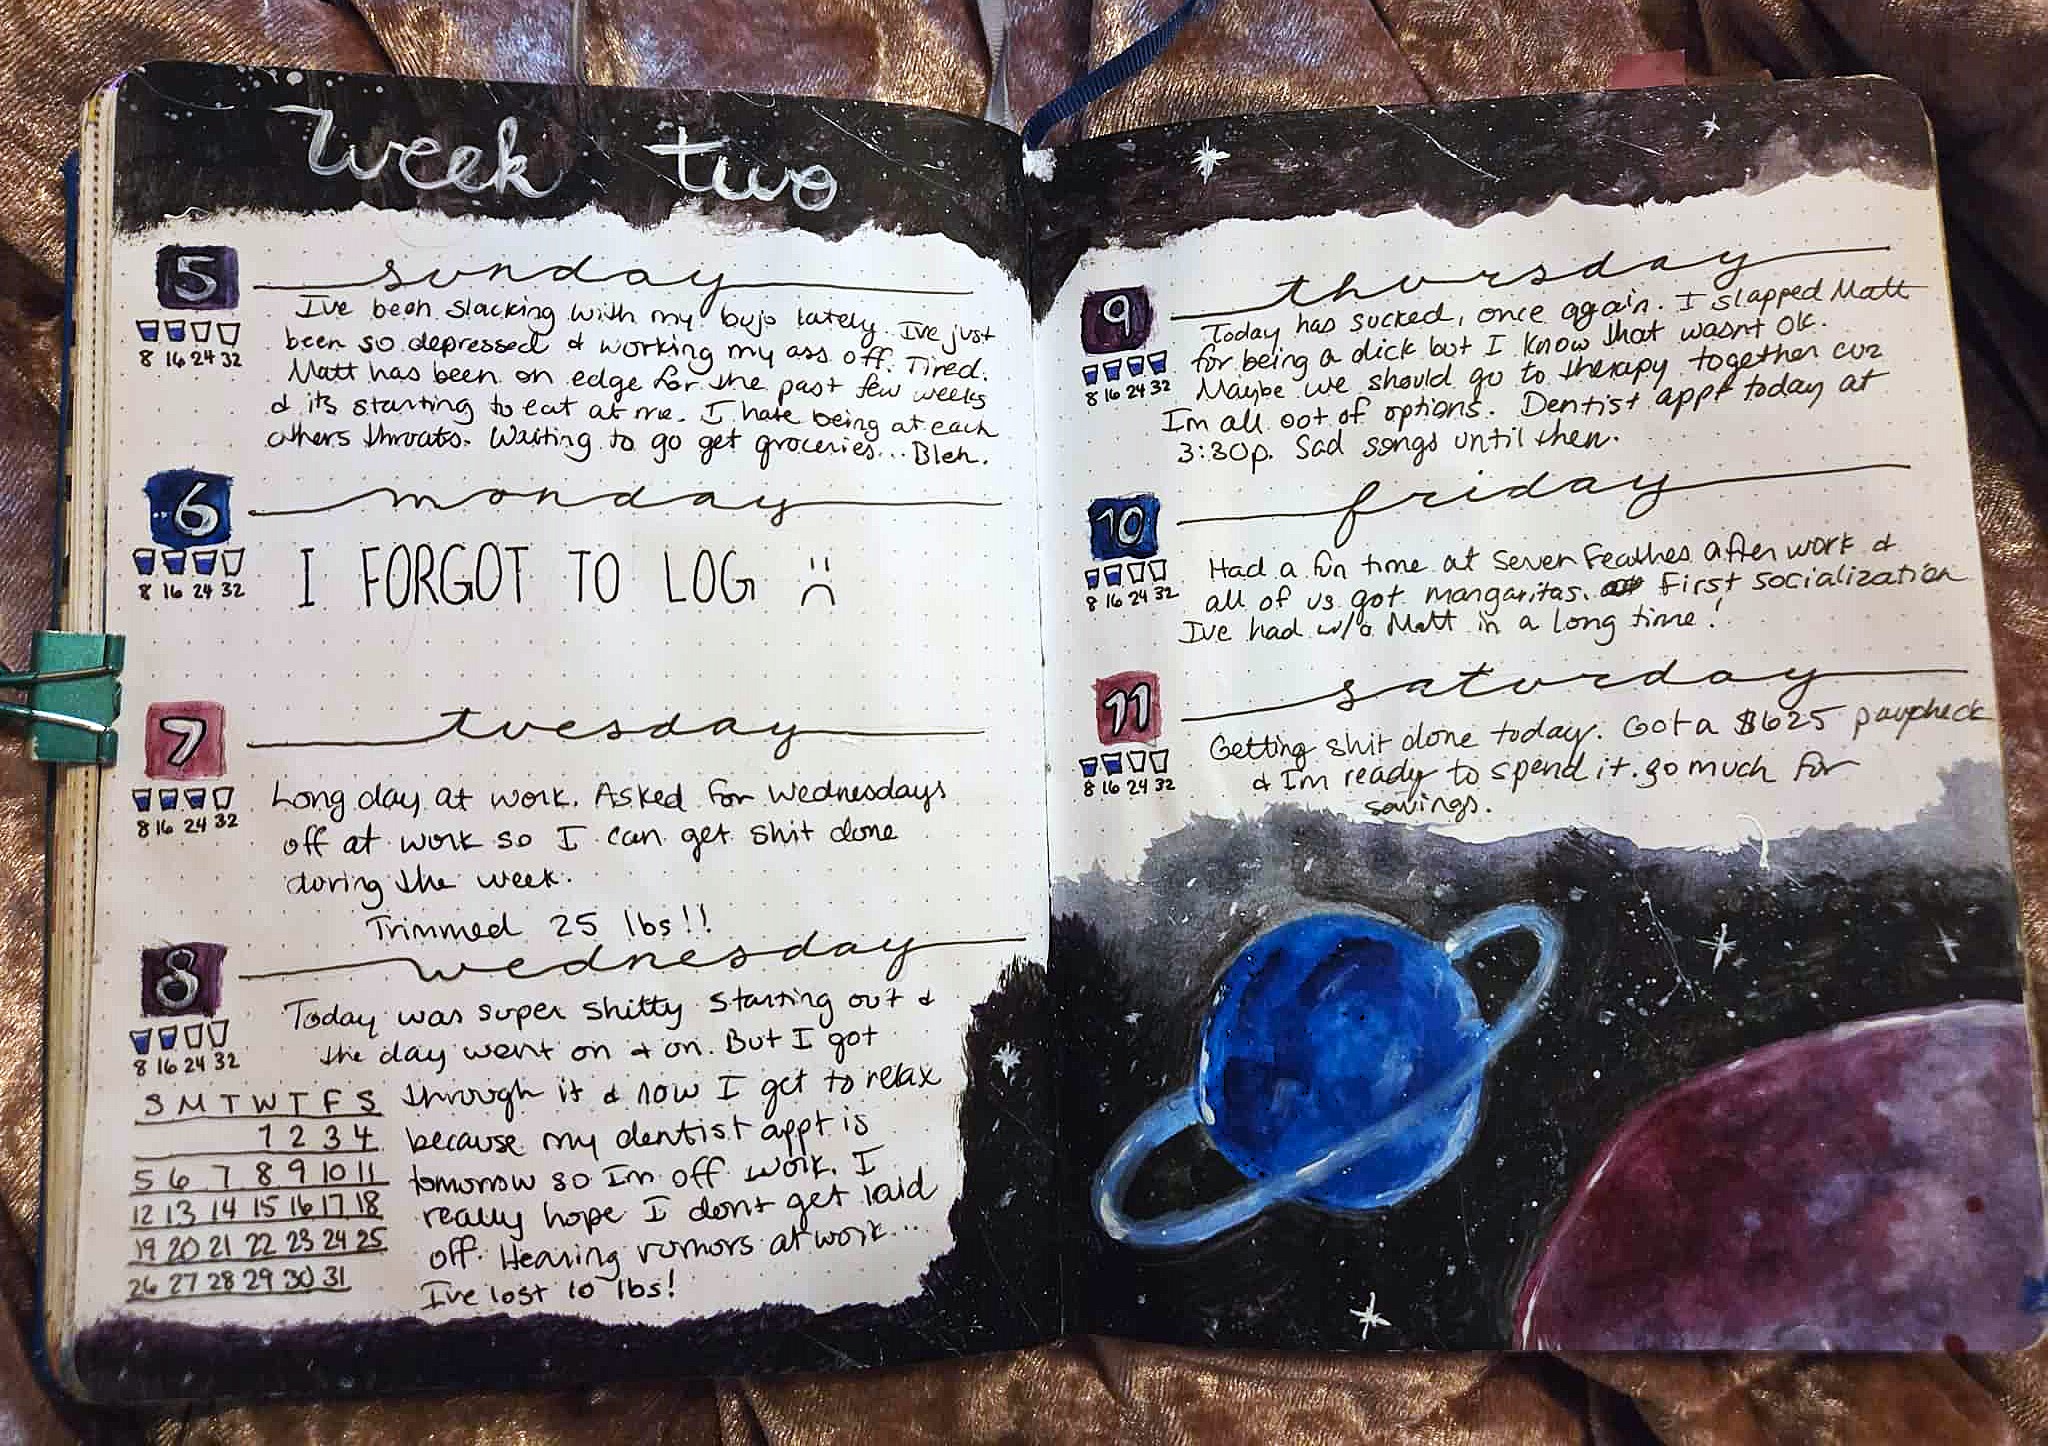 week two
5 sunday
8 16 24 32
Ive been slacking with my bujo lately. Ive just
been so depressed & working my ass off. Tired.
Matt has been on edge for the past few weeks
& its starting to eat at me. I hate being at each
others throats. Waiting to go get groceries... Bleh.
6 monday
8 16 24 32
I FORGOT TO LOG :(
7 tuesday
8 16 24 32
Long day at work. Asked for Wednesdays
off at work so I can get shit done
during the week.
Trimmed 25 lbs!!
8 wednesday
8 16 24 32
Today was super shitty starting out &
the day went on & on. But I got
through it & now I get to relax
because my dentist appt is
tomorrow so Im off work. I
really hope I dont get laid
off. Hearing rumors at work...
Ive lost 10 lbs!
S M T W T F S
1 2 3 4
5 6 7 8 9 10 11
12 13 14 15 16 17 18
19 20 21 22 23 24 25
26 27 28 29 30 31
9 thursday
8 16 24 32
Today has sucked, once again. I slapped Matt
for being a dick but I know that wasnt ok.
Maybe we should go to therapy together cuz
Im all out of options. Dentist appt today at
3:30p. Sad songs until then.
10 friday
8 16 24 32
Had a fun time at Seven Feathes after work &
all of us got margaritas. First socialization
Ive had w/o Matt in a long time!
11 saturday
8 16 24 32
Getting shit done today. Got a $625 paycheck
& Im ready to spend it. So much for
savings.